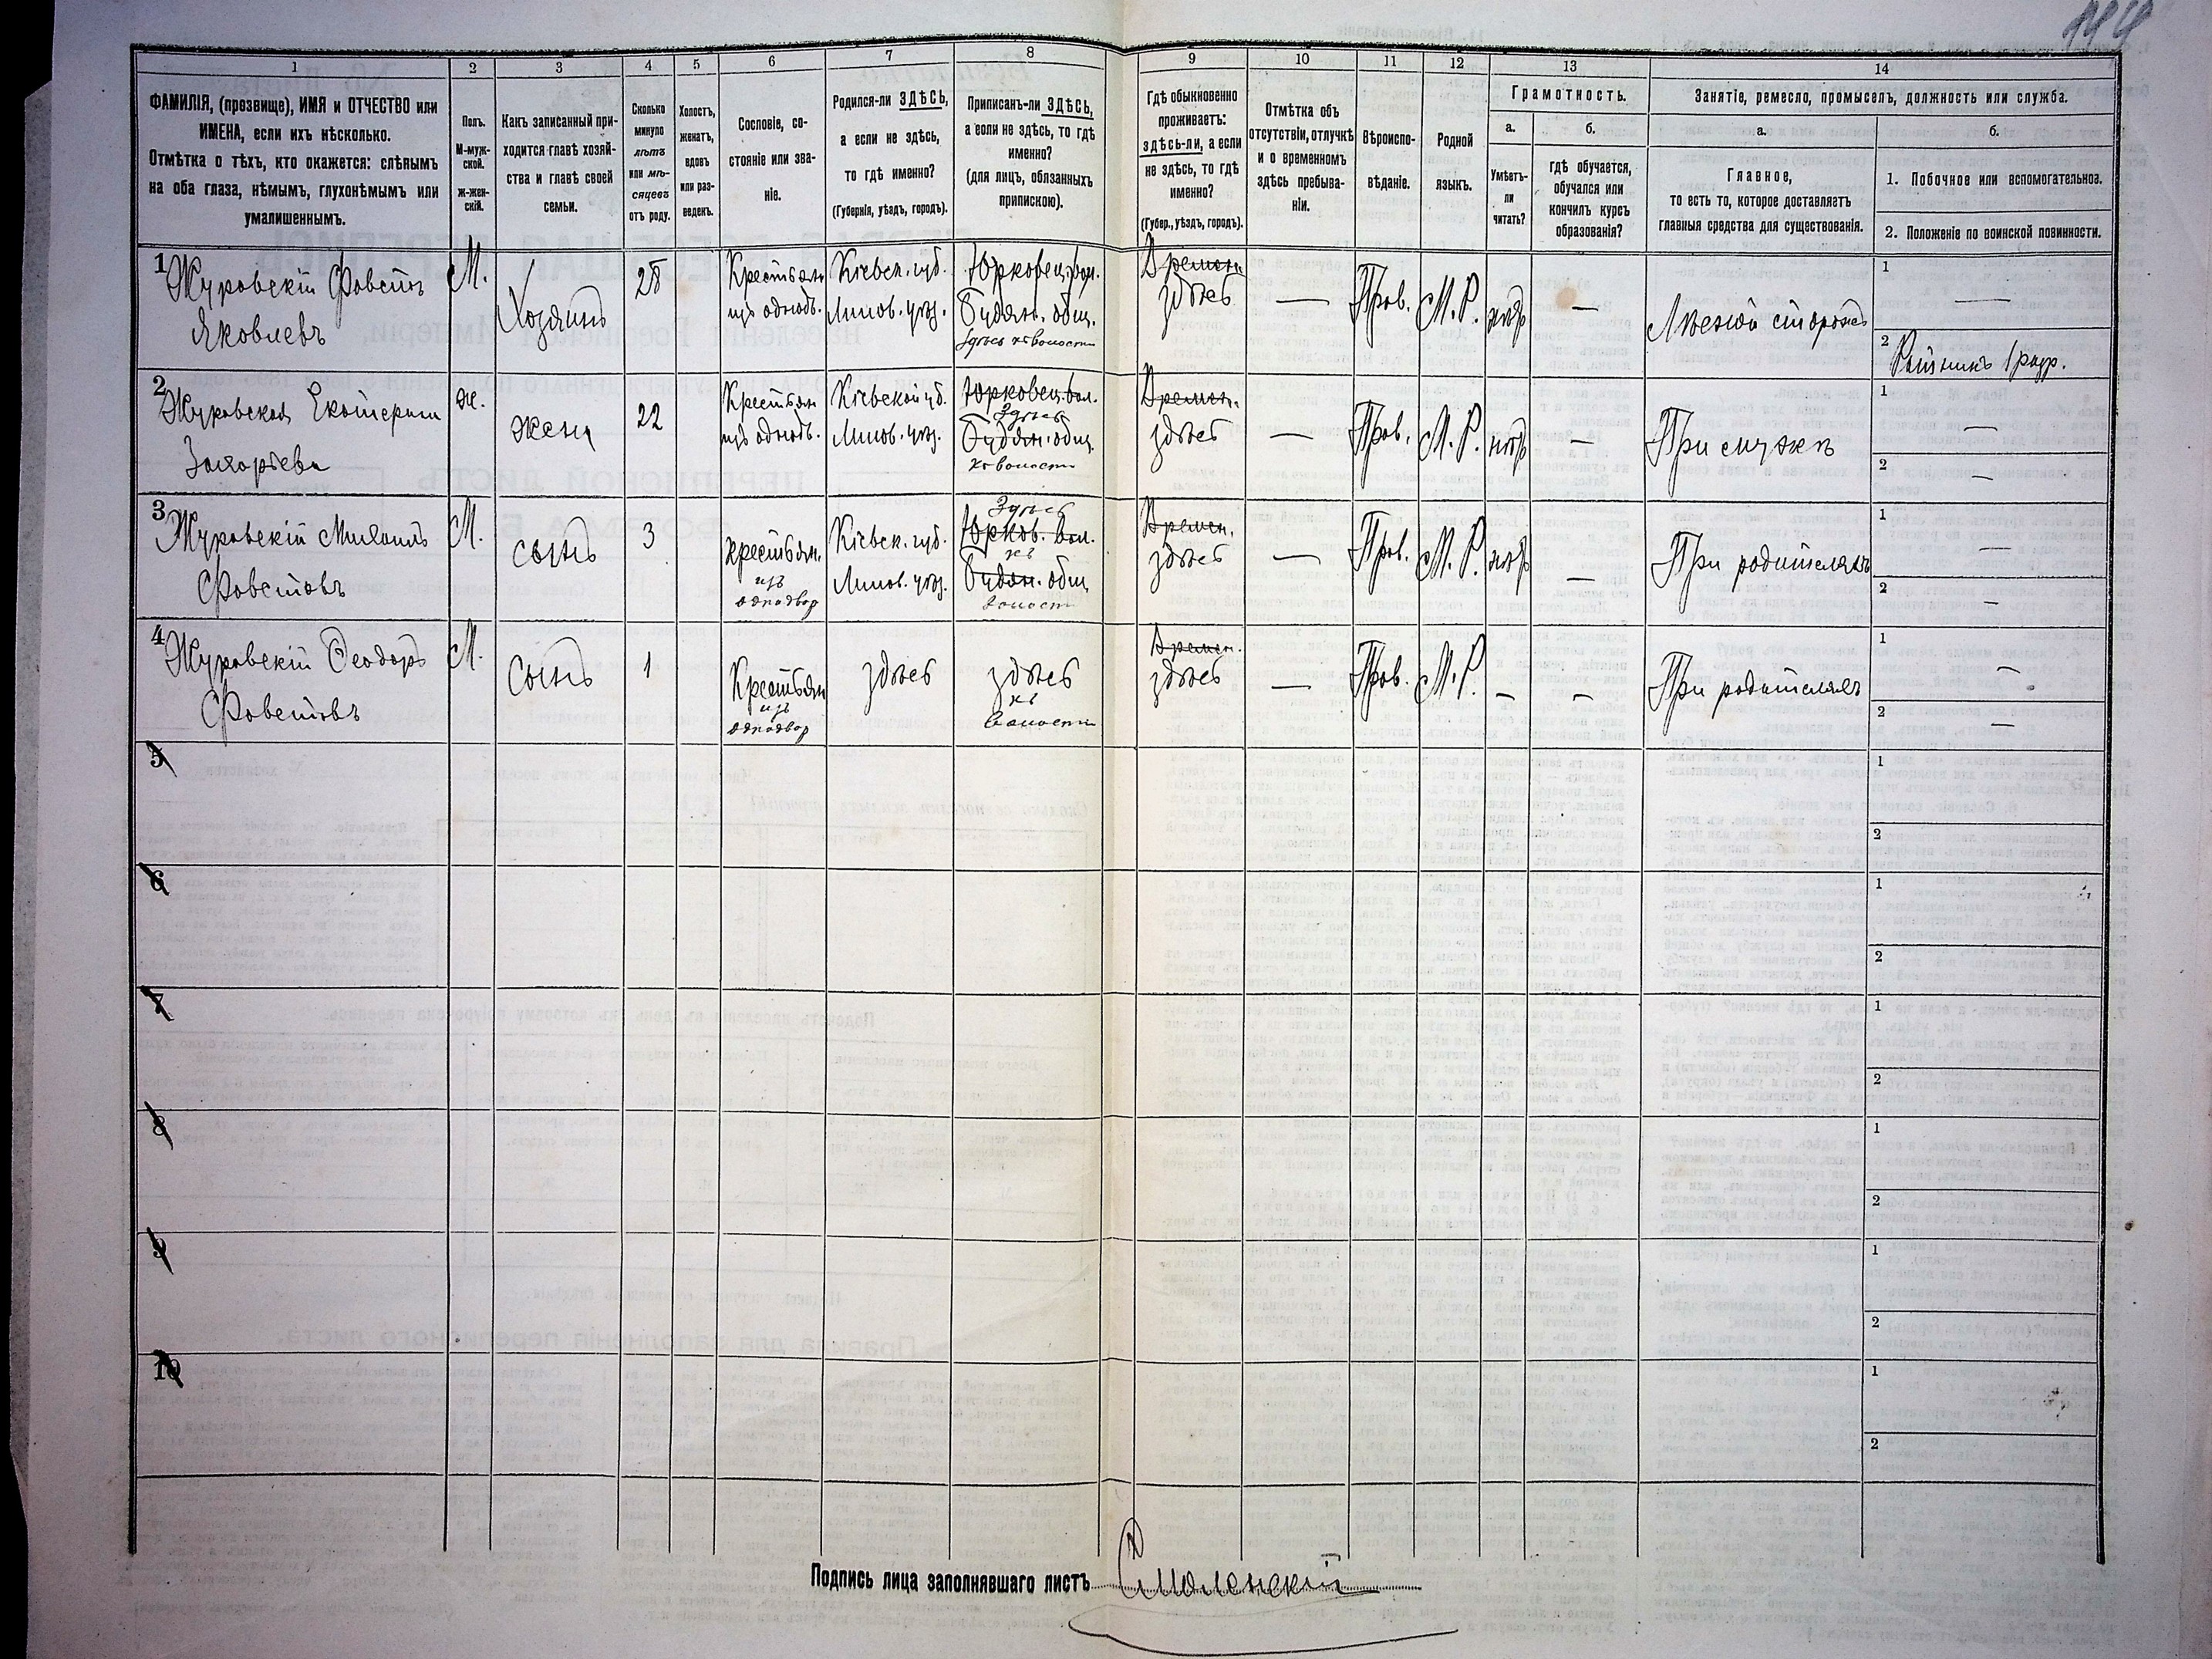 1 2 3 4 5 6 7 8 9 10 11 12 13 14
ФАМИЛІЯ, (прозвище), ИМЯ и ОТЧЕСТВО или
ИМЕНА, если ихъ нѣсколько.
Отмѣтка о тѣхъ, кто окажется: слѣпымъ
на оба глаза, нѣмымъ, глухонѣмымъ или
умалишеннымъ.
Полъ.
М-муж-
ской.
ж-жен-
скій.
Какъ записанный при-
ходится главѣ хозяй-
ства и главѣ своей
семьи.
Сколько
минуло
лѣтъ
или мѣ-
сяцевъ
отъ роду.
Холостъ,
женатъ,
вдовъ
или раз-
веденъ.
Сословіе, со-
стояніе или зва-
ніе.
Родился-ли ЗДѢСЬ,
а если не здѣсь,
то гдѣ именно?
(Губернія, уѣздъ, городъ).
Приписанъ-ли ЗДѢСЬ,
а если не здѣсь, то гдѣ
именно?
(для лицъ, обязанныхъ
припискою).
Гдѣ обыкновенно
проживаетъ:
здѣсь-ли, а если
не здѣсь, то гдѣ
именно?
(Губер., уѣздъ, городъ).
Отмѣтка объ
отсутствіи, отлучкѣ
и о временномъ
здѣсь пребыва-
ніи.
Вѣроиспо-
вѣданіе.
Родной
языкъ.
Грамотность.
а.
Умѣетъ-
ли
читать?
б.
гдѣ обучается,
обучался или
кончилъ курсъ
образованія?
Занятіе, ремесло, промыселъ, должность или служба.
а.
Главное,
то есть то, которое доставляетъ
главныя средства для существованія.
б.
1. Побочное или вспомогательное.
2. Положеніе по воинской повинности.
1
Журовскій Фовстъ
Яковлевъ
М.
Хозяинъ
28
Крестьян
изъ однодв.
Кіевск. губ.
Липов. уѣз.
Юрковец. вол.
Будян. общ.
здѣсь къ волости
Времен.
здѣсь
—
Прав.
М. Р.
нѣтъ
—
Лѣсной сторожъ
1
—
2
Ратникъ 1 разр.
2
Журовская Екатерина
Захаріева
ж.
жена
22
Крестьян
изъ однодв.
Кіевской губ.
Липов. уѣз.
Юрковец. вол.
Здѣсь
Будян. общ.
къ волости
Времен.
здѣсь
—
Прав.
М. Р.
нѣтъ
—
При мужѣ
1
—
2
—
3
Журовскій Михаилъ
Фовстовъ
М.
сынъ
3
крестьян.
изъ
однодвор
Кіевск. губ.
Липов. уѣз.
Здѣсь
Юрков. вол.
къ
Будян. общ.
волости
Времен.
здѣсь
—
Прав.
М. Р.
нѣтъ
—
При родителяхъ
1
—
2
—
4
Журовскій Феодоръ
Фовстовъ
М.
Сынъ
1
Крестьян
изъ
однодвор
здѣсь
здѣсь
къ
волости
Времен.
здѣсь
—
Прав.
М. Р.
—
—
При родителяхъ
1
—
2
—
5
1
2
6
1
2
7
1
2
8
1
2
9
1
2
10
1
2
Подпись лица заполнявшаго листъ Смоленскій